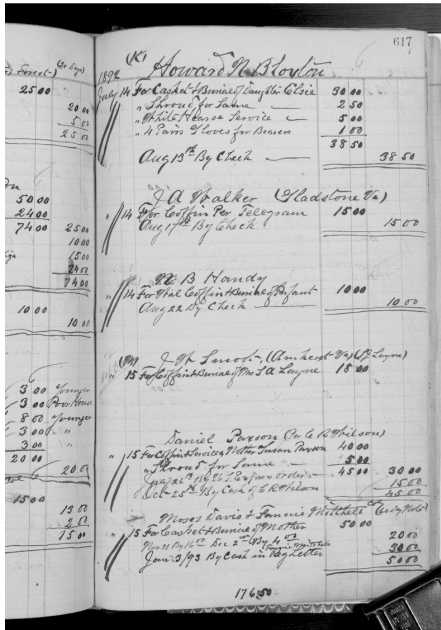 617
(K)
Howard N. Bloxton
1892
July 14 For Casket & Burial of Daughter Elsie 30 00
" Shroud for Same 2 50
" White Hearse Service 5 00
" 4 Pairs Gloves for Bearers 1 00
38 50
Aug 13th By Check 38 50
J A Walker (Gladstone Va)
" 14 For Coffin Per Telegram 15 00
Aug 17th By Check 15 00
B Handy
" 14 For Wal Coffin & Burial of Infant 10 00
Aug 22 By Check 10 00
J W Smoot, (Amherst Va) Layne)
" 15 For Coffin & Burial of Mrs S A Layne 18 00
Daniel Paxson (Per C R Wilson)
" 15 For Coffin & Service Mother Susan Paxson 40 00
" Shroud for Same 5 00
45 00 30 00
15 00
Oct 25th By Cash of C R Wilson 45 00
Moses Davis & Fannie Mitchell
" 15 For Casket & Burial of Mother 50 00
20 00
Nov 21 By 16 00 Dec 2nd By 4 00
Fannie Mitchell
30 00
Jan 3/93 By Cash in Reg Letter 50 00
176 50
Forest)
25 00
20 00
5 00
25 00
50 00
24 00
74 00 25 00
10 00
15 00
24 00
74 00
10 00
10 00
3 00 Younger
3 00 Poor House
8 00 Younger
3 00 "
3 00 "
20 00
20 00
15 00
13 00
2 00
15 00